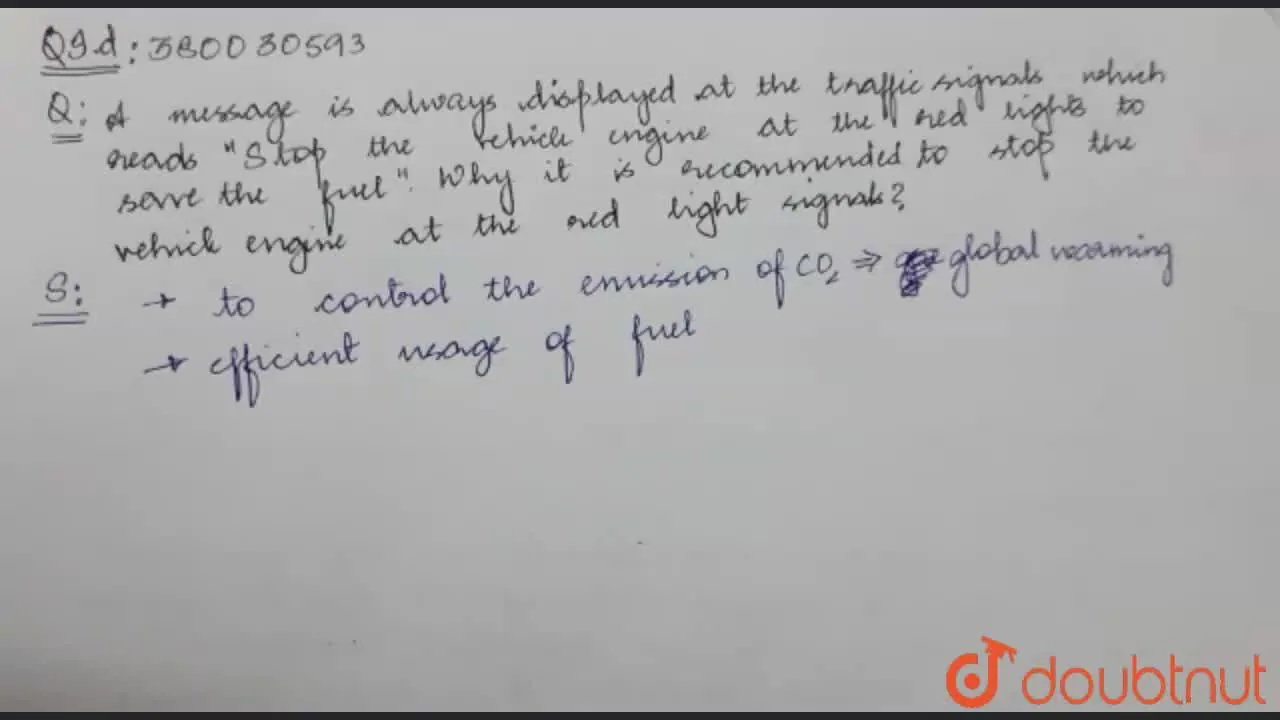 QId: 380030593
Q: A message is always displayed at the traffic signals which
reads "Stop the vehicle engine at the red lights to
save the fuel". Why it is recommended to stop the
vehicle engine at the red light signals?
S: → to control the emission of CO₂ ⇒ global warming
→ efficient usage of fuel
doubtnut